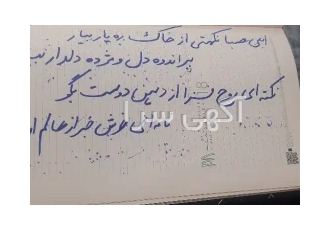 ای صبا نکهتی از خاک ره یار بیار
ببر اندوه دل و مژده دلدار بیـ
نکته ای روح فزا از دهن دوست بگو
نامه ای خوش خبر از عالم ا
آگهی سرا